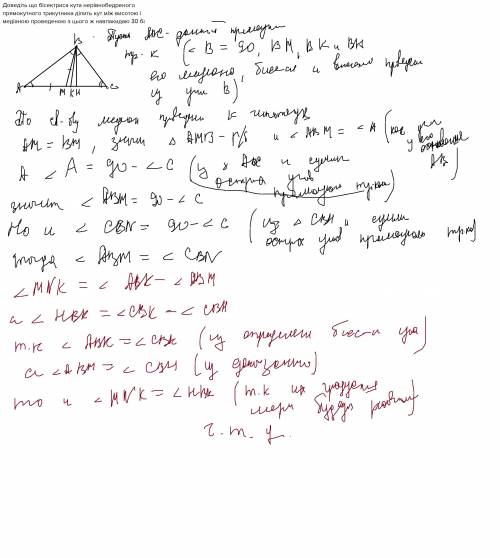 Доведіть що бісектриса кута нерівнобедреного
прямокутного трикутника ділить кут між висотою і
медіаною проведеною з цього ж навпаківпіл
Пусть ABC - данный прямоуг.
B
тр-к (∠B = 90, BM, BK и BH
его медиана, биссек и высота провед
из угла B)
A M K H C
По св-ву медианы проведен к гипотенузе
AM = BM, значит △AMB - р/б и ∠ABM = ∠A (как углы
у его основания
AB)
А ∠A = 90 - ∠C (из △ABC и суммы
острых углов
прямоугол треуг)
значит ∠ABM = 90 - ∠C
Но и ∠CBH = 90 - ∠C (из △CBH и суммы
острых углов прямоугольного треуг)
тогда ∠ABM = ∠CBH
∠MBK = ∠ABK - ∠ABM
а ∠HBK = ∠CBK - ∠CBH
т.к ∠ABK = ∠CBK (из определен биссек угла)
а ∠ABM = ∠CBH (из доказанного)
то и ∠MBK = ∠HBK (т.к их градусная
мера будет равны)
ч.т.д.